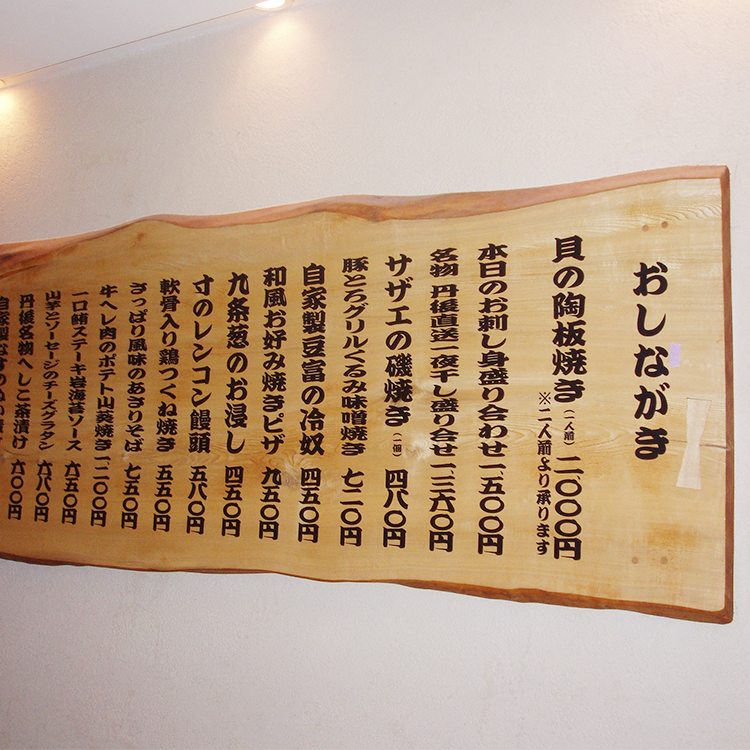 おしながき
貝の陶板焼き(二人前)二、〇〇〇円
※二人前より承ります
本日のお刺し身盛り合わせ一、五〇〇円
名物 丹後直送一夜干し盛り合せ一、三六〇円
サザエの磯焼き(二個)四八〇円
豚とろグリルくるみ味噌焼き 七二〇円
自家製豆富の冷奴 四五〇円
和風お好み焼きピザ 九五〇円
九条葱のお浸し 四五〇円
寸のレンコン饅頭 五八〇円
軟骨入り鶏つくね焼き 五五〇円
さっぱり風味のあぶりそば 七五〇円
牛ヘレ肉のポテト山葵焼き 一、二〇〇円
一口鮪ステーキ岩海苔ソース 六五〇円
山芋とソーセージのチーズグラタン 六八〇円
丹後名物へしこ茶漬け 六〇〇円
自家製